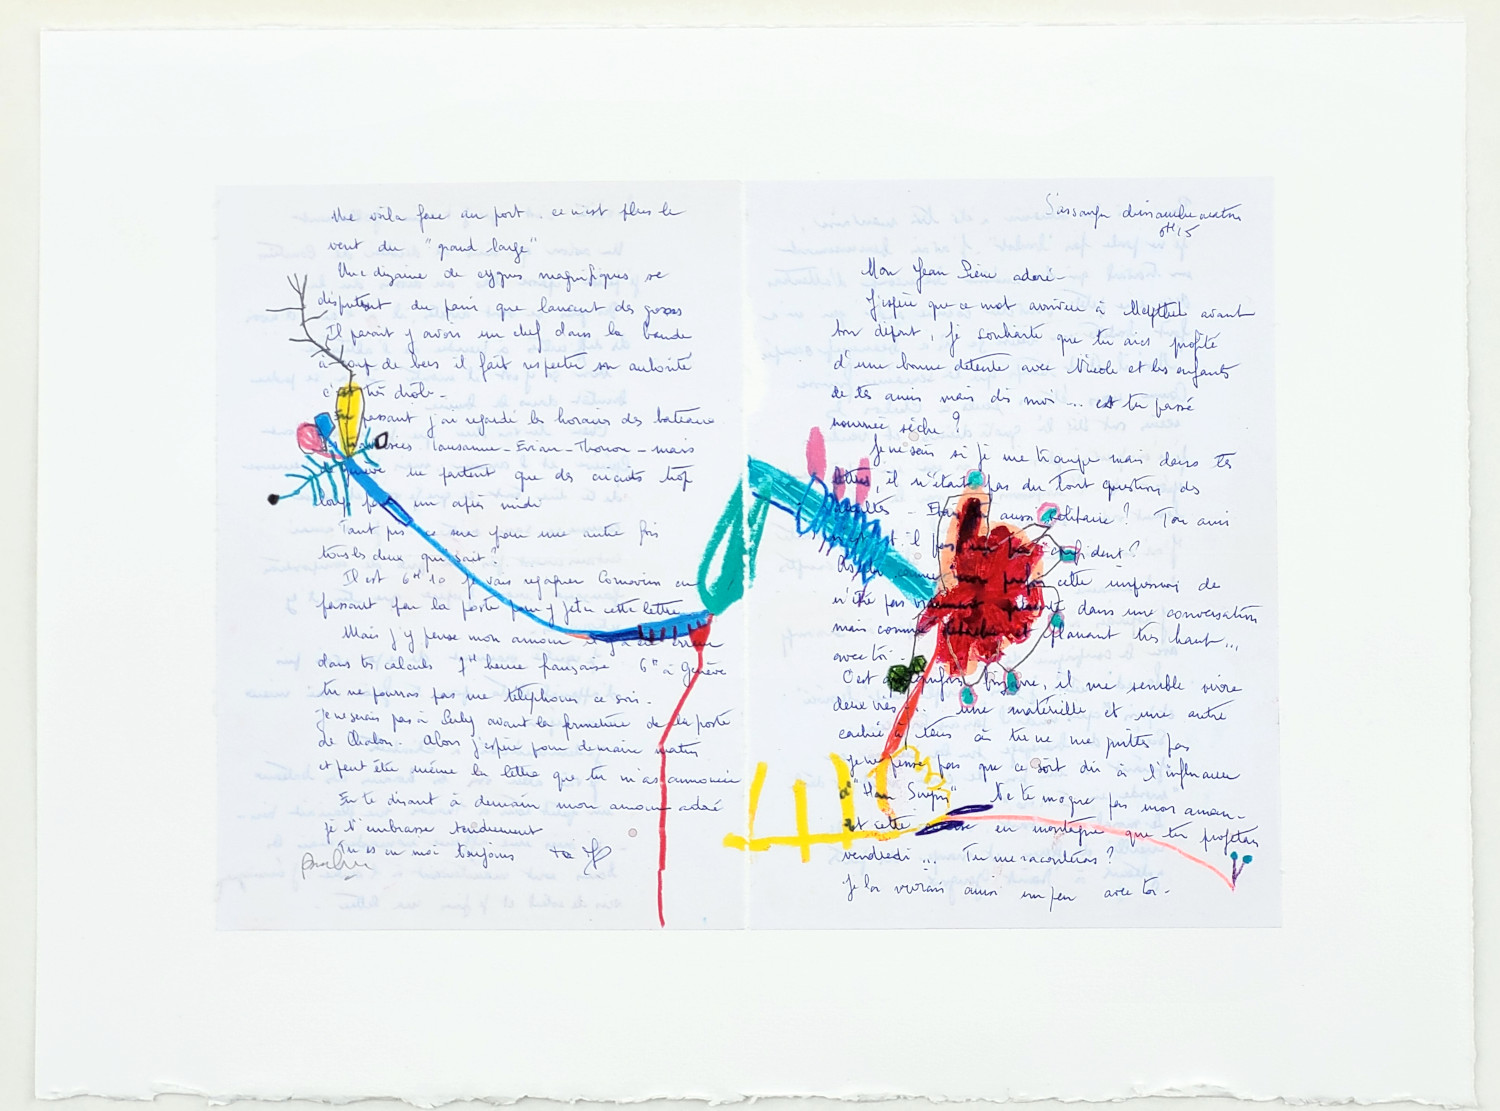 Me voilà face au port. ce n'est plus le
vent du "grand large"
Une dizaine de cygnes magnifiques se
disputent du pain que lancent des gosses
Il parait y avoir un chef dans la bande
à coup de becs il fait respecter son autorité
c'est très drôle.
En passant j'ai regardé les horaires des bateaux
traversées Lausanne - Evian - Thonon - mais
de Genève ne partent que des circuits trop
longs pour un après midi
Tant pis ce sera pour une autre fois
tous les deux qui sait ?
Il est 6H10 je vais regagner Cornavin en
passant par la poste pour y jeter cette lettre
Mais j'y pense mon amour il y a eu erreur
dans tes calculs 7H heure française 6H à Genève
tu ne pourras pas me téléphoner ce soir.
je ne serais pas à avant la fermeture de la poste
de Chalon. Alors j'espère pour demain matin
et peut être même la lettre que tu m'as annoncée
En te disant à demain mon amour adoré
je t'embrasse tendrement
Tu es en moi toujours ta
dimanche matin
Mon Jean Pierre adoré -
J'espère que ce mot arrivera à avant
ton départ, je souhaite que tu aies profité
d'une bonne détente avec Nicole et les enfants
de tes amis mais dis moi ... es tu passé
journée sèche ?
Je ne sais si je me trompe mais dans tes
lettres, il n'était pas du tout question des
aussi solitaire ? Ton ami
n'est il pas un peu "confident" ?
As tu comme moi parfois cette impression de
n'être pas vraiment présente dans une conversation
mais comme détachée et planant très haut...
avec toi.
C'est quelquefois bizarre, il me semble vivre
deux vies ... une matérielle et une autre
cachée à tous où tu ne me quittes pas
je ne pense pas que ce soit dû à l'influence
d' "Han Suyin" Ne te moque pas mon amour.
et cette en montagne que tu profites
vendredi ... Tu me raconteras ?
Je la vivrais aussi un peu avec toi -